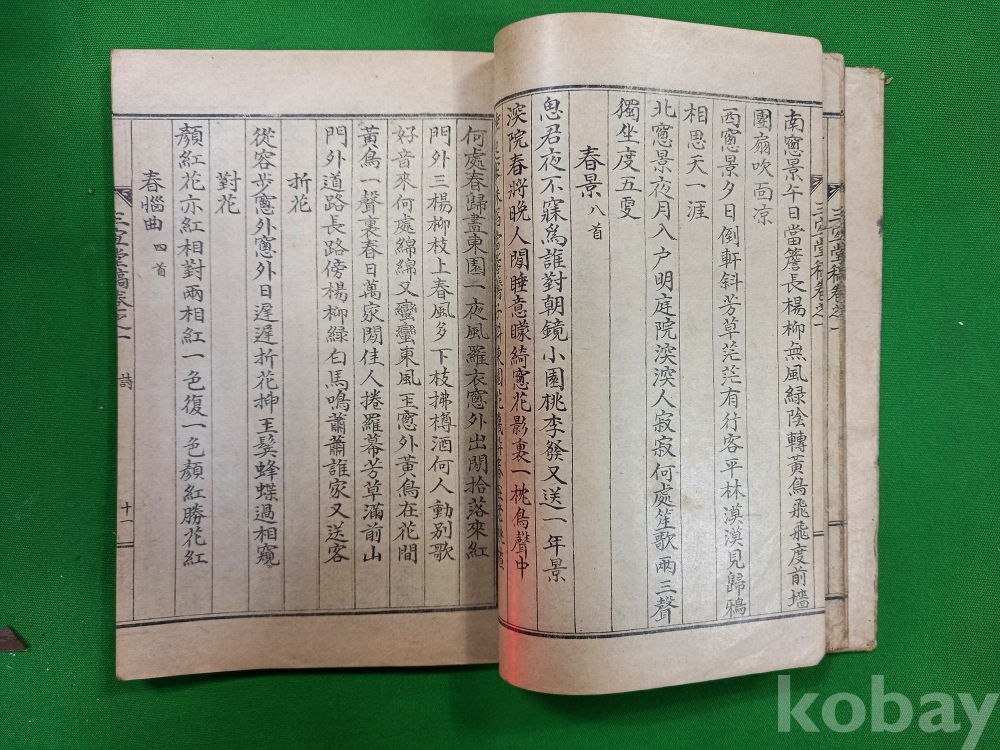 南窓景午日當簷長楊柳無風綠陰轉黃鳥飛飛度前墻
團扇吹面凉
西窓景夕日倒軒斜芳草茫茫有行客平林漠漠見歸鴉
相思天一涯
北窓景夜月入户明庭院深深人寂寂何處笙歌兩三聲
獨坐度五更
春景 八首
思君夜不寐爲誰對朝鏡小園桃李發又送一年景
深院春將晚人閒睡意矇綺窓花影裏一枕鳥聲中
何處春歸盡東園一夜風羅衣窓外出閒拾落來紅
門外三楊柳枝上春風多下枝拂樽酒何人動別歌
好音來何處綿綿又蠻蠻東風玉窓外黃鳥在花間
黃鳥一聲裏春日萬家閒佳人捲羅幕芳草滿前山
門外道路長路傍楊柳綠白馬鳴蕭蕭誰家又送客
折花
從容步窓外窓外日遲遲折花揷玉鬂蜂蝶過相窺
對花
顏紅花亦紅相對兩相紅一色復一色顏紅勝花紅
春惱曲 四首
三宜堂稿卷之一 詩 十一
三宜堂稿卷之一
三宜堂稿卷之一
kobay